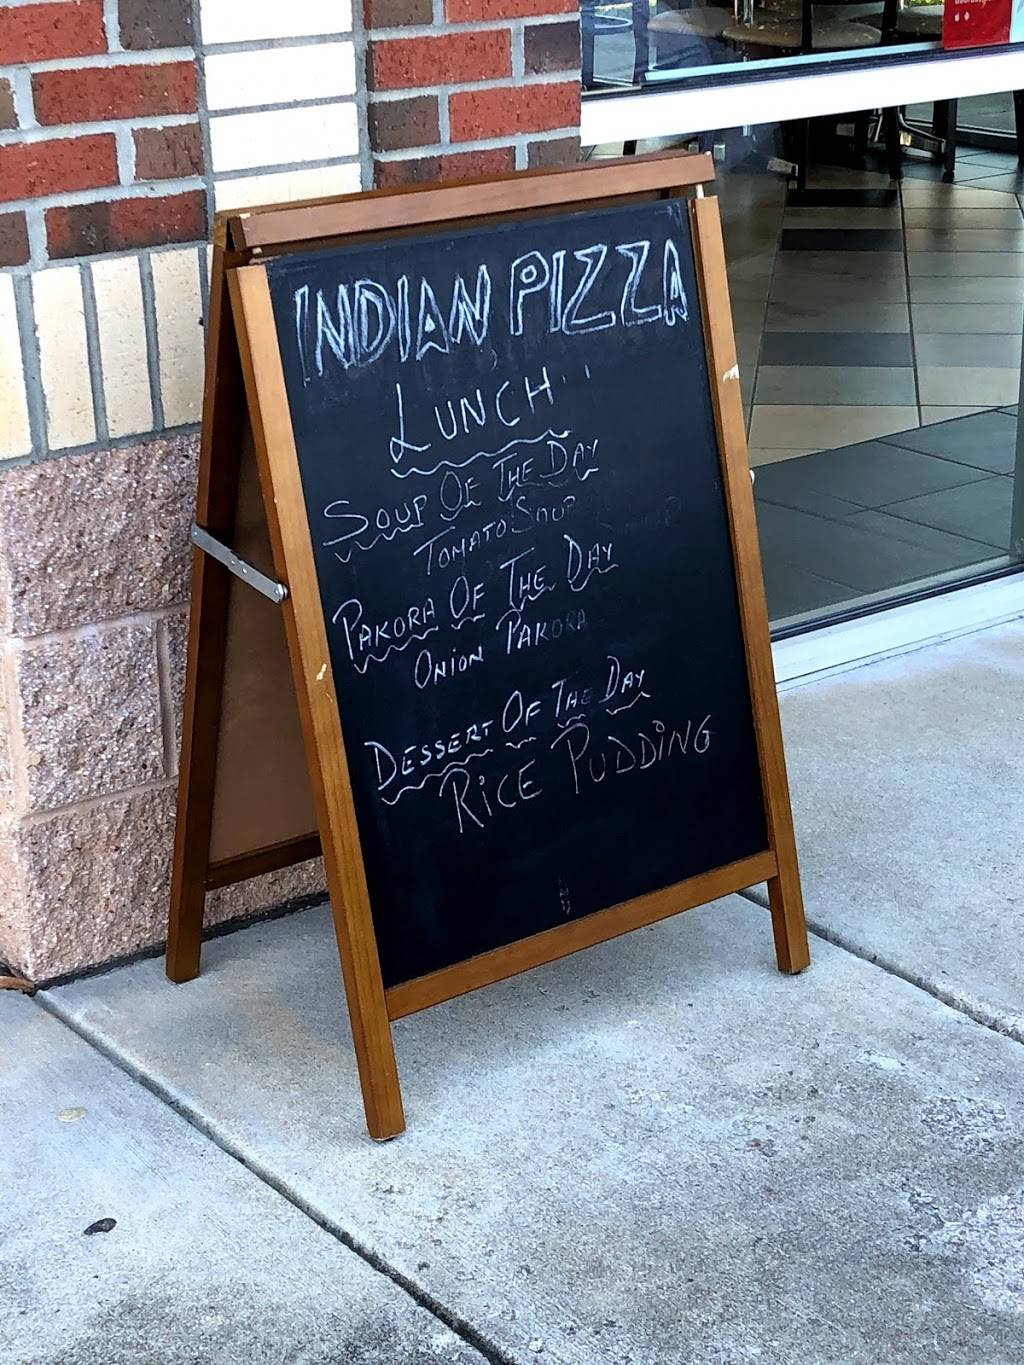 INDIAN PIZZA
LUNCH
SOUP OF THE DAY
TOMATO SOUP
PAKORA OF THE DAY
ONION PAKORA
DESSERT OF THE DAY
RICE PUDDING